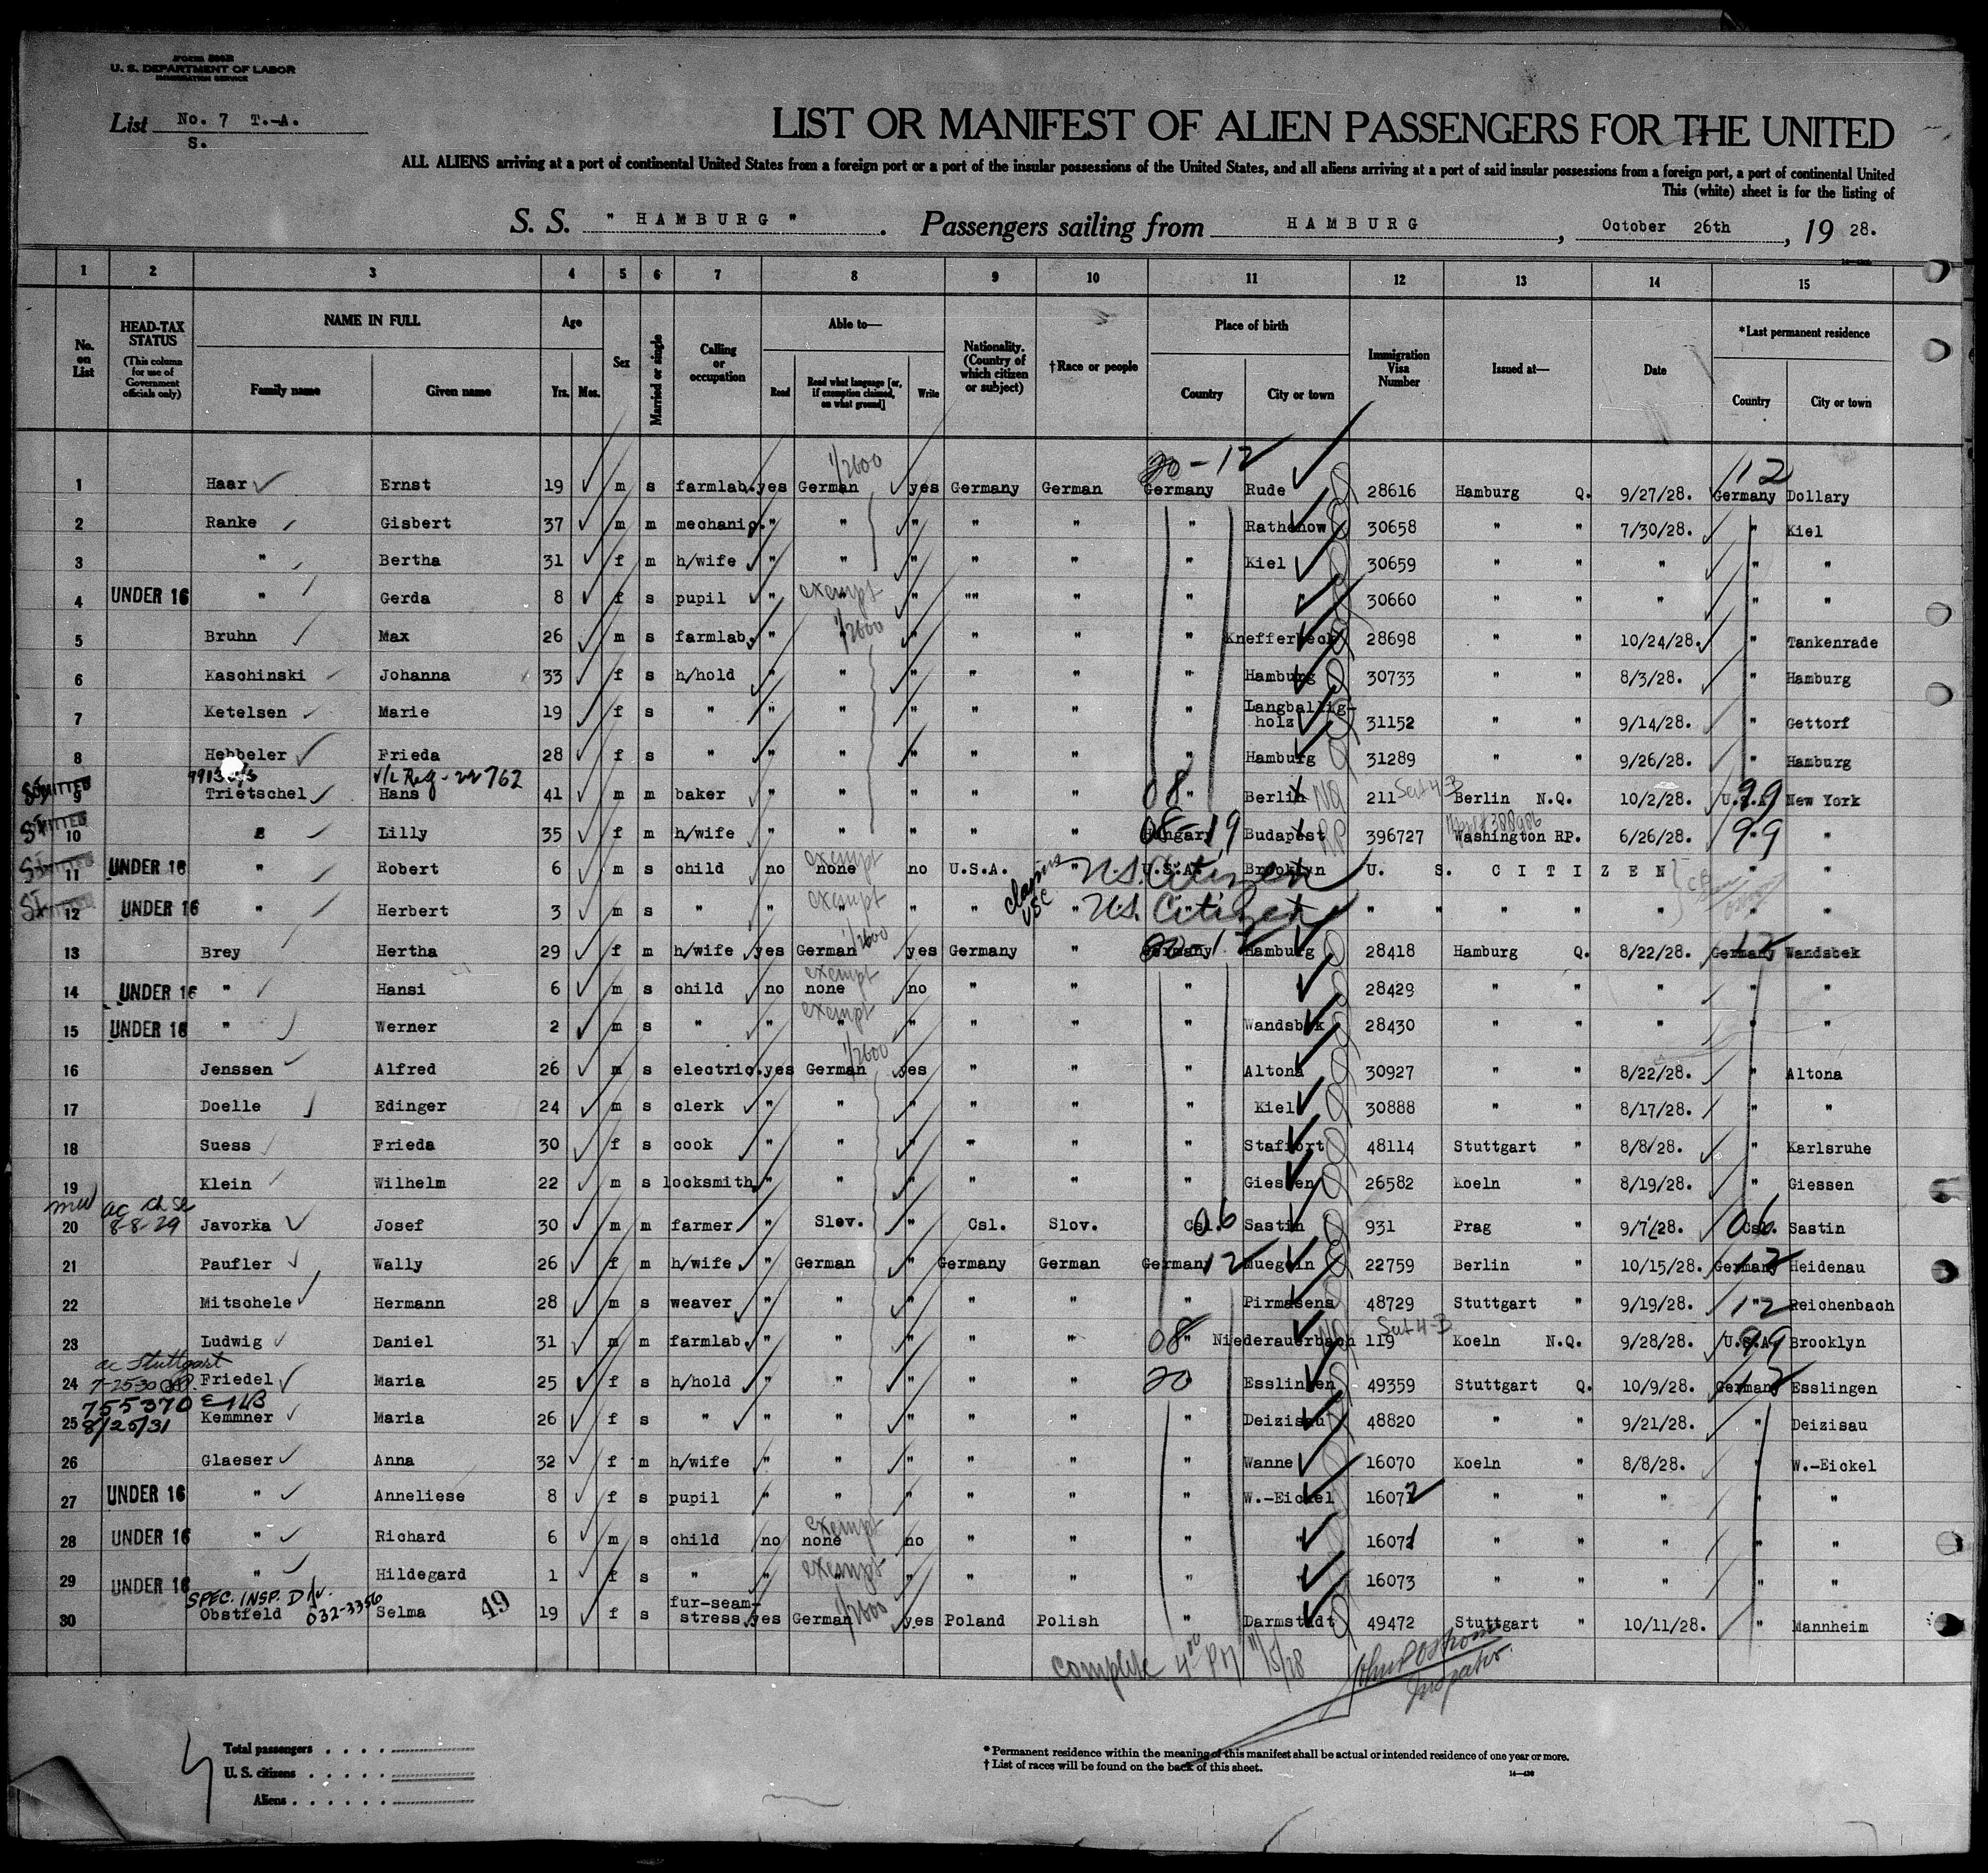 Form 500B
U. S. DEPARTMENT OF LABOR
IMMIGRATION SERVICE
List No. 7 T.-A.
S.
LIST OR MANIFEST OF ALIEN PASSENGERS FOR THE UNITED
ALL ALIENS arriving at a port of continental United States from a foreign port or a port of the insular possessions of the United States, and all aliens arriving at a port of said insular possessions from a foreign port, a port of continental United
This (white) sheet is for the listing of
S. S. "HAMBURG". Passengers sailing from HAMBURG, October 26th, 19 28.
1 2 3 4 5 6 7 8 9 10 11 12 13 14 15
No. on List
HEAD-TAX STATUS (This column for use of Government officials only)
NAME IN FULL Family name Given name
Age Yrs. Mos.
Sex
Married or single
Calling or occupation
Able to— Read Read what language [or, if exemption claimed, on what ground] Write
Nationality. (Country of which citizen or subject)
†Race or people
Place of birth Country City or town
Immigration Visa Number
Issued at—
Date
*Last permanent residence Country City or town
1/2600 20-12 12
1 Haar Ernst 19 m s farmlab. yes German yes Germany German Germany Rude 28616 Hamburg Q. 9/27/28. Germany Dollary
2 Ranke Gisbert 37 m m mechanic. " " " " " " Rathenow 30658 " " 7/30/28. " Kiel
3 " Bertha 31 f m h/wife " " " " " " Kiel 30659 " " " " "
4 UNDER 16 " Gerda 8 f s pupil " exempt " "" " " " 30660 " " " " "
5 Bruhn Max 26 m s farmlab. " 1/2600 " " " " Knefferbeck 28698 " " 10/24/28. " Tankenrade
6 Kaschinski Johanna 33 f s h/hold " " " " " " Hamburg 30733 " " 8/3/28. " Hamburg
7 Ketelsen Marie 19 f s " " " " " " " Langballig-holz 31152 " " 9/14/28. " Gettorf
8 Hebbeler Frieda 28 f s " " " " " " " Hamburg 31289 " " 9/26/28. " Hamburg
V/L Reg - 22762
9 Trietschel Hans 41 m m baker " " " " " 08 " Berlin NQ 211 Sec 4-B Berlin N.Q. 10/2/28. U.S.A. 99 New York
10 " Lilly 35 f m h/wife " " " " " Hungary 08-19 Budapest RP 396727 Washington RP. 6/26/28. 99 "
11 UNDER 16 " Robert 6 m s child no exempt none no U.S.A. " U.S.A. Brooklyn U.S. Citizen U. S. CITIZEN " "
12 UNDER 16 " Herbert 3 m s " " exempt " " " claims USC " U.S. Citizen " " " " " " "
13 Brey Hertha 29 f m h/wife yes German 1/2600 yes Germany " Germany Hamburg 28418 Hamburg Q. 8/22/28. Germany 12 Wandsbek
14 UNDER 16 " Hansi 6 m s child no exempt none no " " " " 28429 " " " " "
15 UNDER 16 " Werner 2 m s " " exempt " " " " " Wandsbek 28430 " " " " "
16 Jenssen Alfred 26 m s electric. yes German 1/2600 yes " " " Altona 30927 " " 8/22/28. " Altona
17 Doelle Edinger 24 m s clerk " " " " " " Kiel 30888 " " 8/17/28. " "
18 Suess Frieda 30 f s cook " " " " " " Staffort 48114 Stuttgart " 8/8/28. " Karlsruhe
19 Klein Wilhelm 22 m s locksmith " " " " " " Giessen 26582 Koeln " 8/19/28. " Giessen
20 8-8-29 Javorka Josef 30 m m farmer " Slov. " Csl. Slov. Csl. 06 Sastin 931 Prag " 9/7/28. Csl. 06 Sastin
21 Paufler Wally 26 f m h/wife " German " Germany German Germany 12 Muegeln 22759 Berlin " 10/15/28. Germany 12 Heidenau
22 Mitschele Hermann 28 m s weaver " " " " " " Pirmasens 48729 Stuttgart " 9/19/28. 12 " Reichenbach
23 Ludwig Daniel 31 m m farmlab. " " " " " 08 " Niederauerbach 119 Sec 4-B Koeln N.Q. 9/28/28. U.S.A. 99 Brooklyn
ac Stuttgart
24 7-2530 Friedel Maria 25 f s h/hold " " " " " 20 Esslingen 49359 Stuttgart Q. 10/9/28. Germany 12 Esslingen
755370
25 8/25/31 Kemmner Maria 26 f s " " " " " " " Deizisau 48820 " " 9/21/28. " Deizisau
26 Glaeser Anna 32 f m h/wife " " " " " " Wanne 16070 Koeln " 8/8/28. " W.-Eickel
27 UNDER 16 " Anneliese 8 f s pupil " " " " " " W.-Eickel 16072 " " " " "
28 UNDER 16 " Richard 6 m s child no exempt none no " " " " 16071 " " " " "
29 UNDER 16 " Hildegard 1 f s " " exempt " " " " " 16073 " " " " "
SPEC. INSP. Div. 032-3356
30 Obstfeld Selma 49 19 f s fur-seam-stress yes German 1/2600 yes Poland Polish " Darmstadt 49472 Stuttgart " 10/11/28. " Mannheim
Complete 4:00 PM 11/5/28
Inspector
Total passengers
U. S. citizens
Aliens
* Permanent residence within the meaning of this manifest shall be actual or intended residence of one year or more.
† List of races will be found on the back of this sheet.